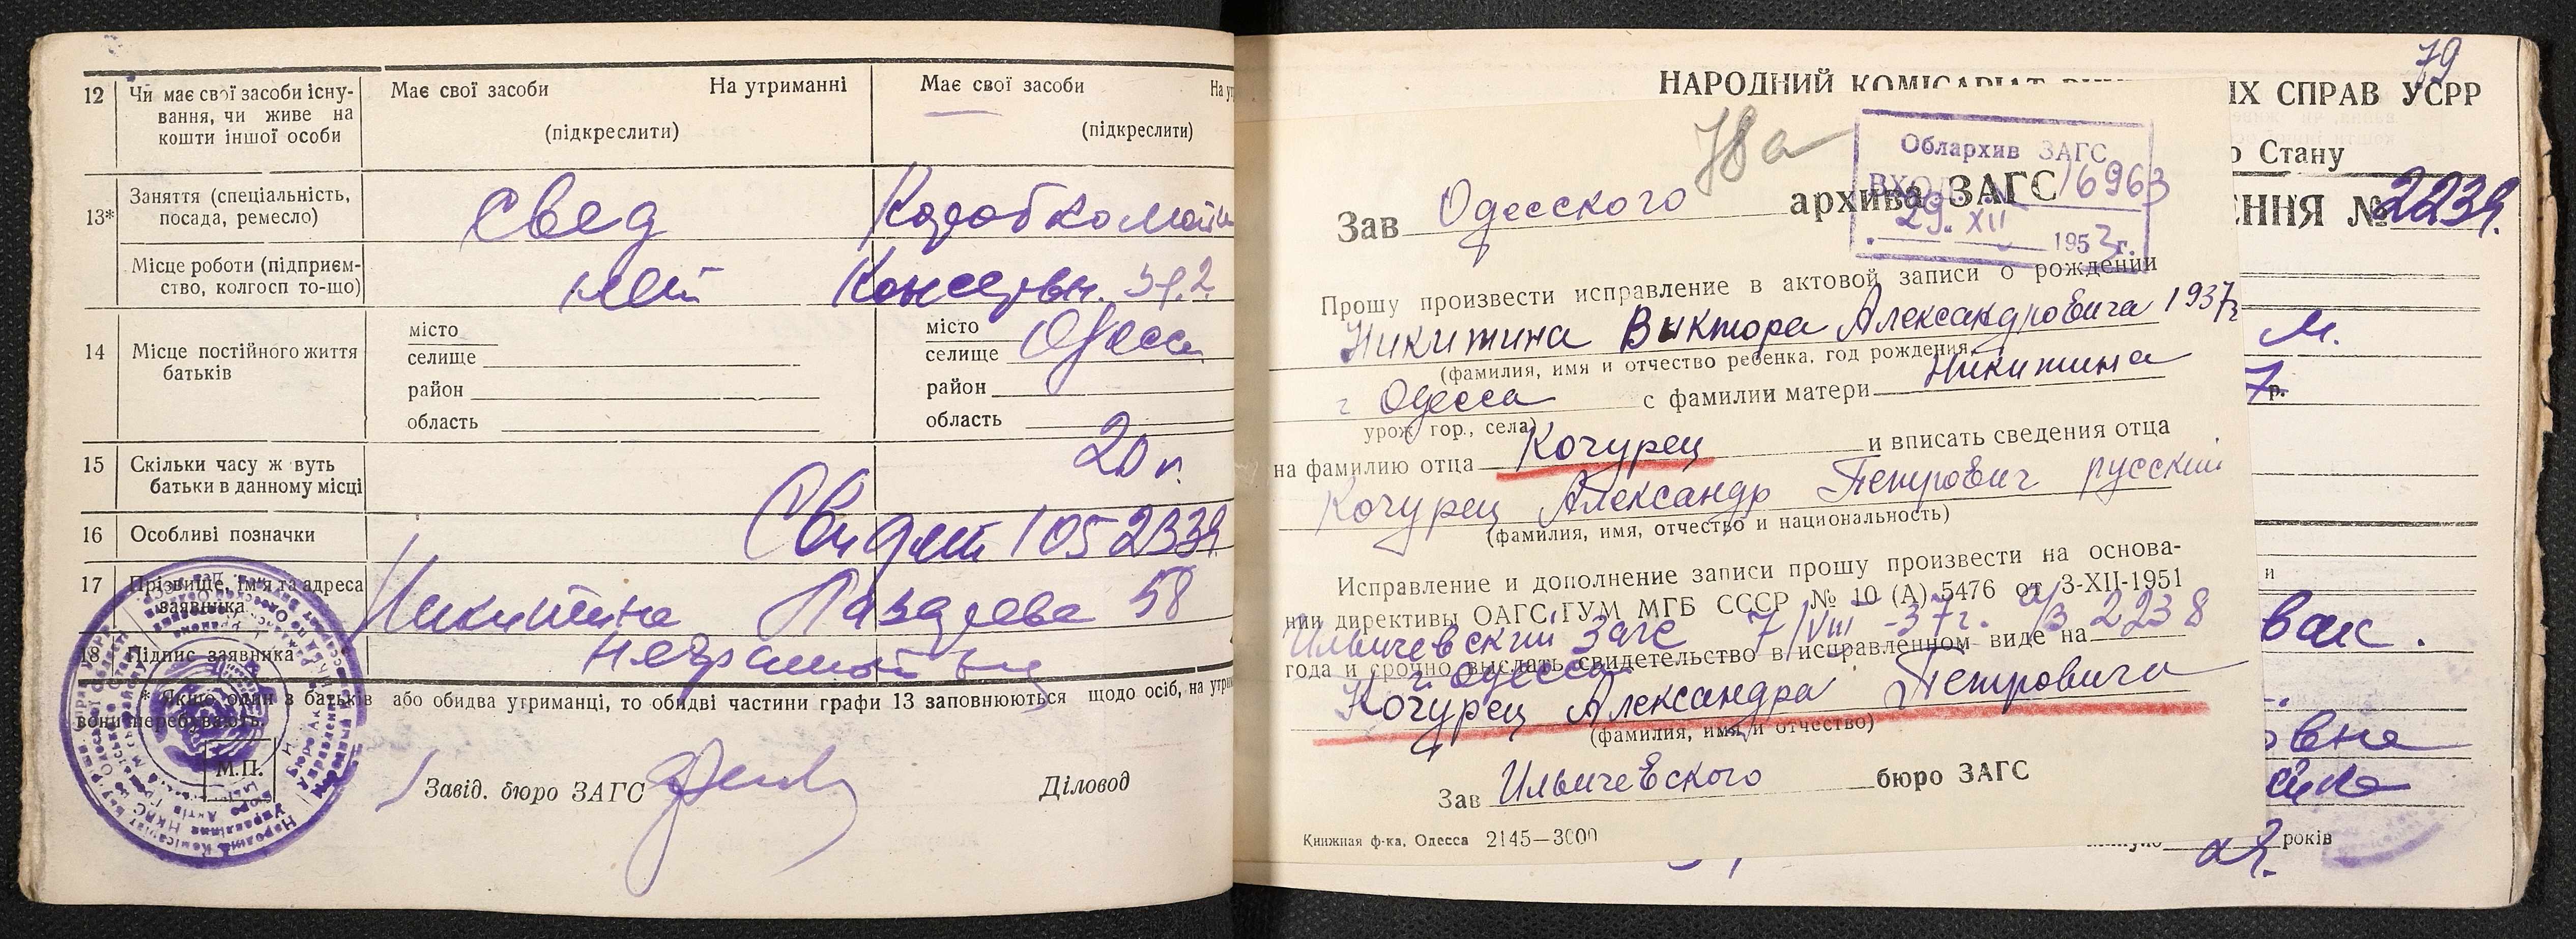 12 Чи має свої засоби існу-
вання, чи живе на
кошти іншої особи
Має свої засоби На утриманні
(підкреслити)
Має свої засоби На ут
(підкреслити)
13* Заняття (спеціальність,
посада, ремесло)
Свед
Місце роботи (підприєм-
ство, колгосп то-що)
нет
Консервн.
14 Місце постійного життя
батьків
місто
селище
район
область
місто
селище Одесса
район
область
15 Скільки часу ж вуть
батьки в данному місці
20 г.
16 Особливі позначки
Свидет 1052339
17 Прізвище, ім'я та адреса
заявника
Никитина Лазарева 58
18 Підпис заявника
неграмотна
* Якщо один з батьків або обидва утриманці, то обидві частини графи 13 заповнюються щодо осіб, на утри
вони перебувають.
М.П.
Завід. бюро ЗАГС
Діловод
79
НАРОДНИЙ КОМІСАРІАТ
ІХ СПРАВ УСРР
о Стану
ЕННЯ № 2239.
м.
7 р.
и
вас.
овна
років
78а
Облархив ЗАГС
ВХОД. № 16963
29. XII 1953 г.
Зав Одесского архива ЗАГС
Прошу произвести исправление в актовой записи о рождении
Никитина Виктора Александровича 1937г
(фамилия, имя и отчество ребенка, год рождения,
г Одесса с фамилии матери Никитина
урож. гор., села)
на фамилию отца Кочурец и вписать сведения отца
Кочурец Александр Петрович русский
(фамилия, имя, отчество и национальность)
Исправление и дополнение записи прошу произвести на основа-
нии директивы ОАГС ГУМ МГБ СССР № 10 (А) 5476 от 3-XII-1951
Ильичевский Загс 7/VIII-37г. а/з 2238
года и срочно выслать свидетельство в исправленном виде на
г. Одесса
Кочурец Александра Петровича
(фамилия, имя и отчество)
Зав Ильичевского бюро ЗАГС
Книжная ф-ка, Одесса 2145—3000